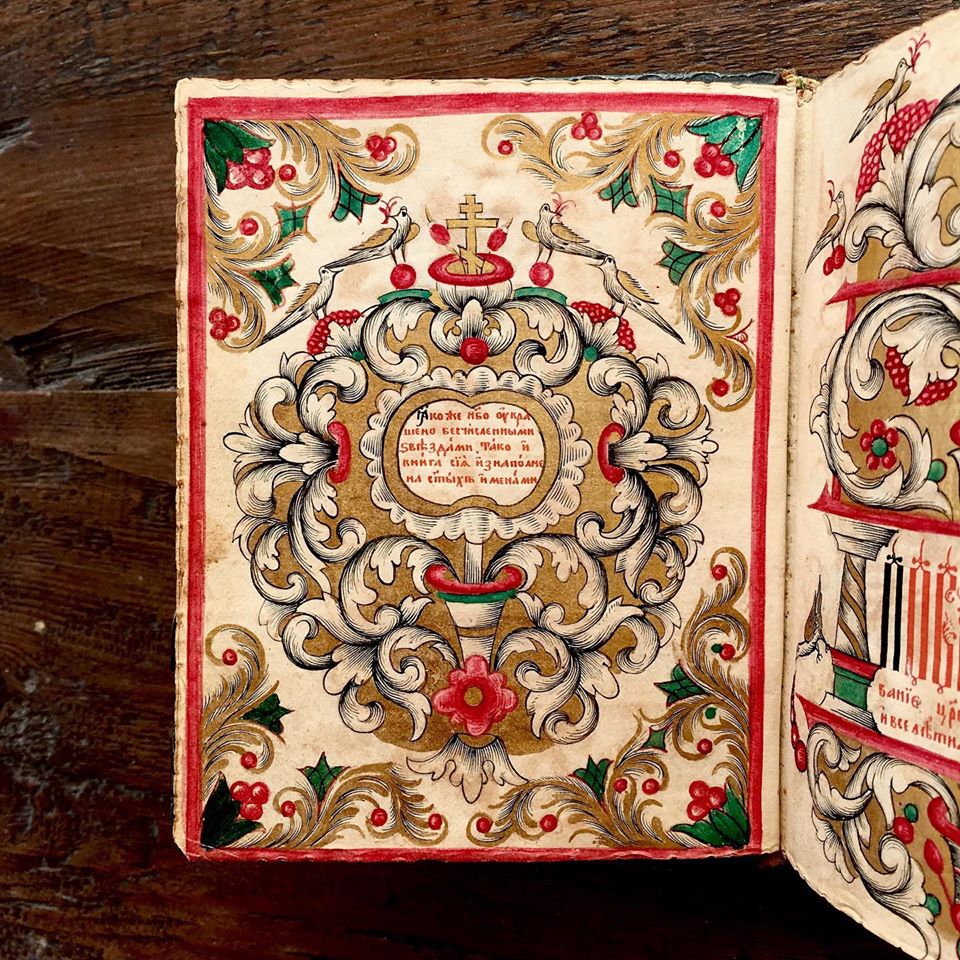 Ꙗ́коже нб҃о оу҆кра
шено бесчи́сленными
ѕвѣзда́ми, та́ко и҆
книга сїѧ̀ и҆знаполне
на ст҃ы́хъ и҆мена́ми
ваніе